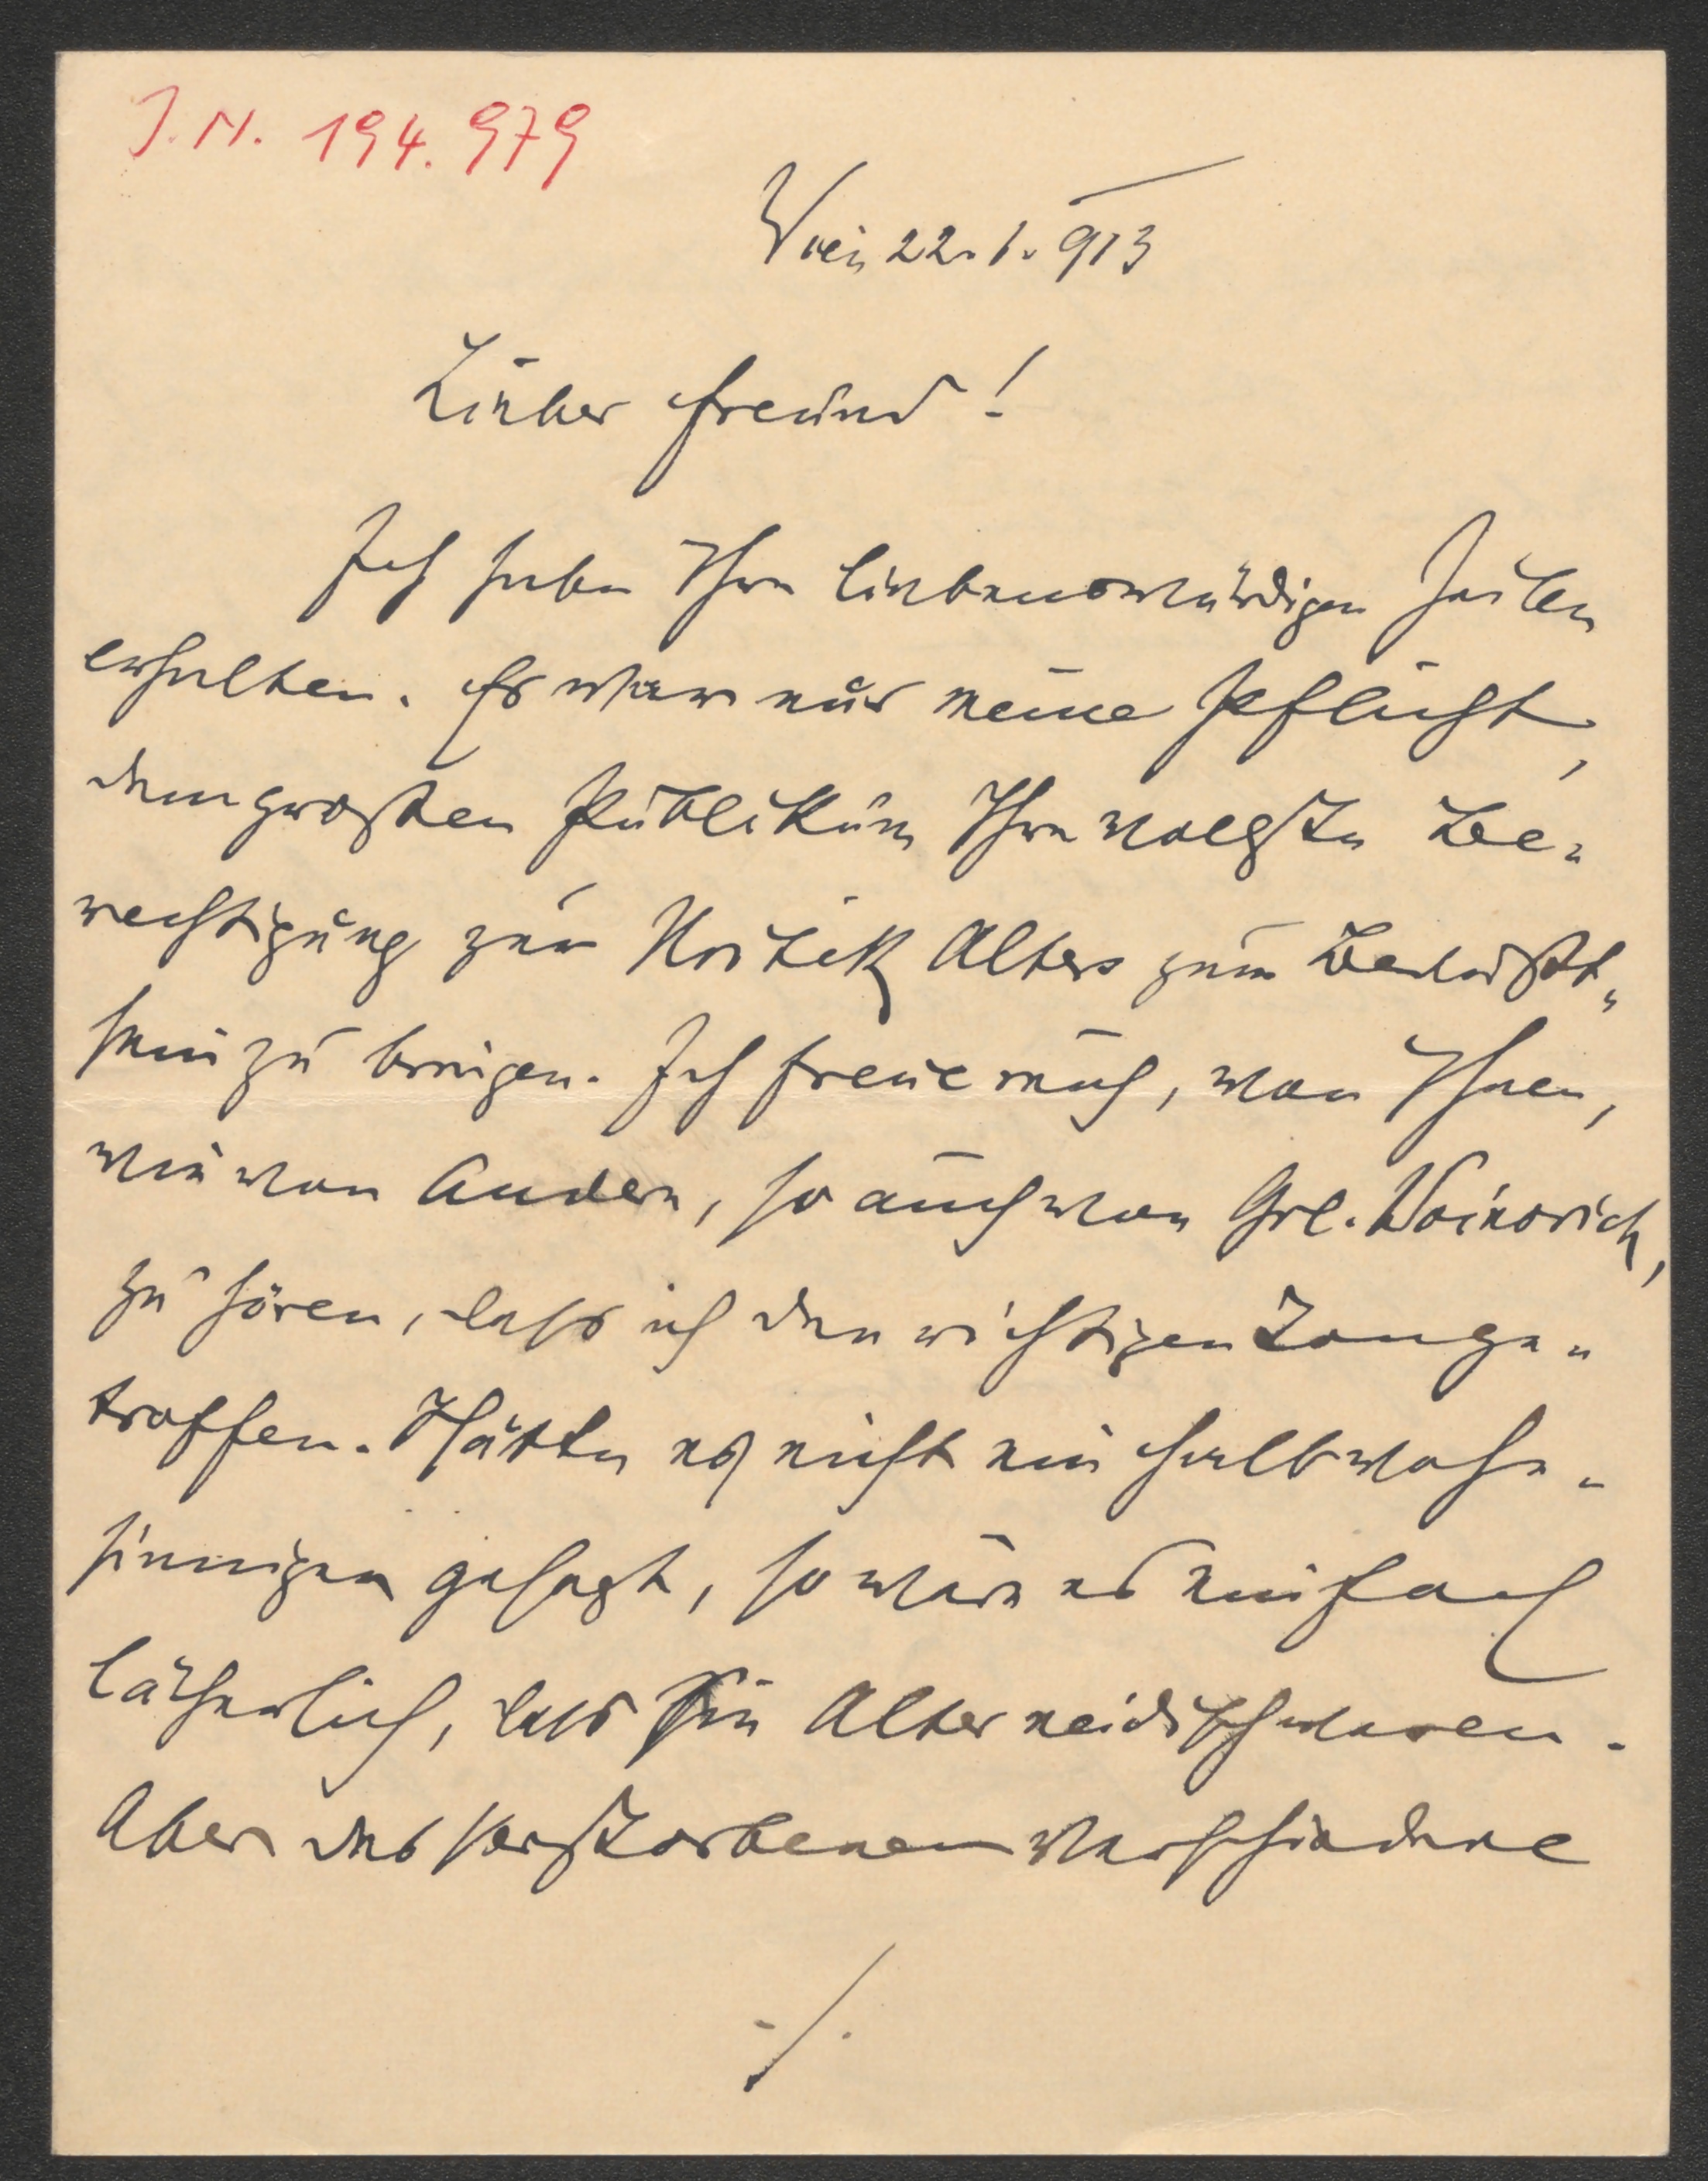 J. N. 194.979
Wien 22. 1. 913
Lieber Freund!
Ich habe Ihre liebenswürdigen Zeilen
erhalten. Es war nur meine Pflicht,
dem großen Publikum Ihre vollste Be-
rechtigung zur Kritik Alters zum Bewußt-
sein zu bringen. Ich freue mich, von Ihnen,
wie von Andern, so auch von Grl. Woinovich,
zu hören, dass ich den richtigen Ton ge-
troffen. Hätte es nicht ein halbwahn-
sinniger gesagt, so wäre es einfach
lächerlich, dass Sie Alter neidisch waren.
Aber des Verstorbenen verschiedene
./.